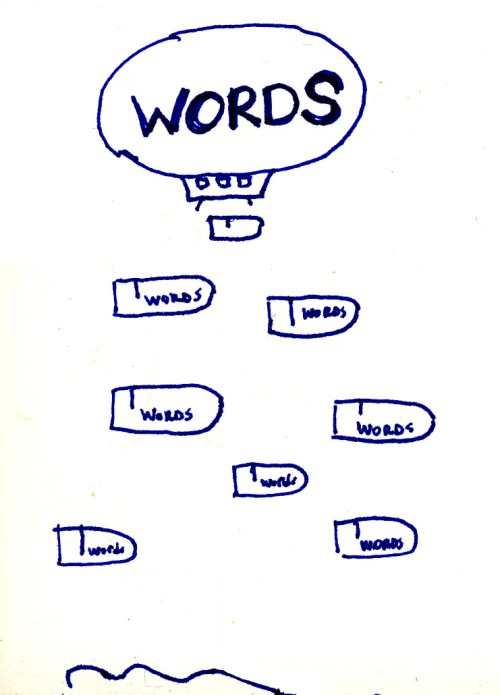 WORDS
WORDS
WORDS
WORDS
WORDS
words
words
WORDS